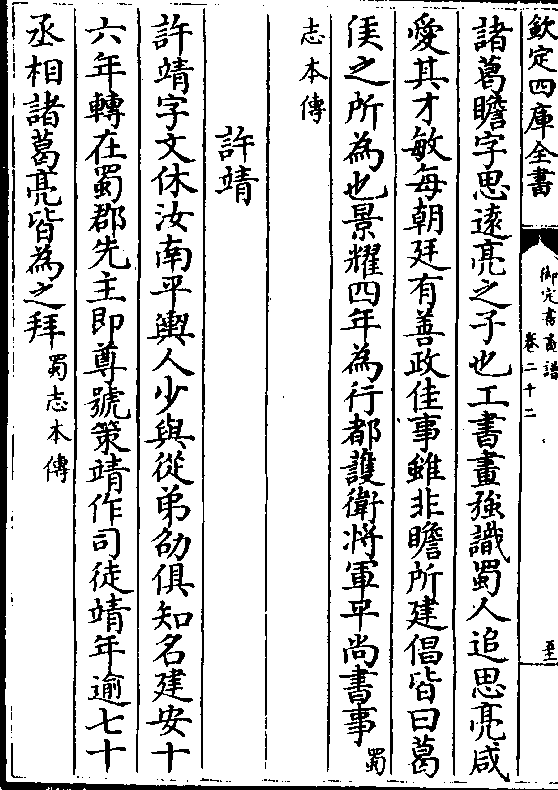 欽定四庫全書
御定書畫譜
卷二十二
諸葛瞻字思遠亮之子也工書畫強識蜀人追思亮咸
愛其才敏每朝廷有善政佳事雖非瞻所建倡皆曰葛
侯之所為也景耀四年為行都護衛將軍平尚書事蜀
志本傳
許靖
許靖字文休汝南平輿人少與從弟劭俱知名建安十
六年轉在蜀郡先主即尊號策靖作司徒靖年逾七十
丞相諸葛亮皆為之拜蜀志本傳